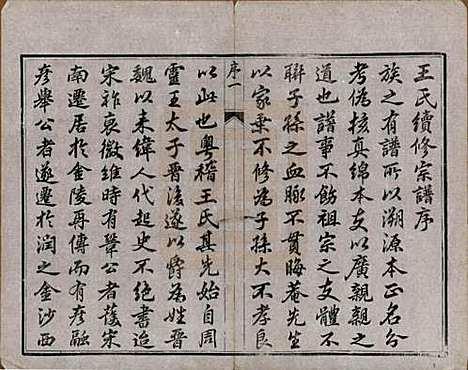 王氏續修宗譜序
族之有譜所以溯源本正名分
考偽核真綿本支以廣親親之
道也譜事不飭祖宗之支體不
聯子孫之血脉不貫晦菴先生
以家乗不修為子孫大不孝良
序一
以此也粤稽王氏其先始自周
靈王太子晉後遂以爵為姓晉
魏以来偉人代起史不絶書迨
宋祚衰微維時有鞏公者護宋
南遷居於金陵再傳而有彦融
彦舉公者遂遷於潤之金沙西